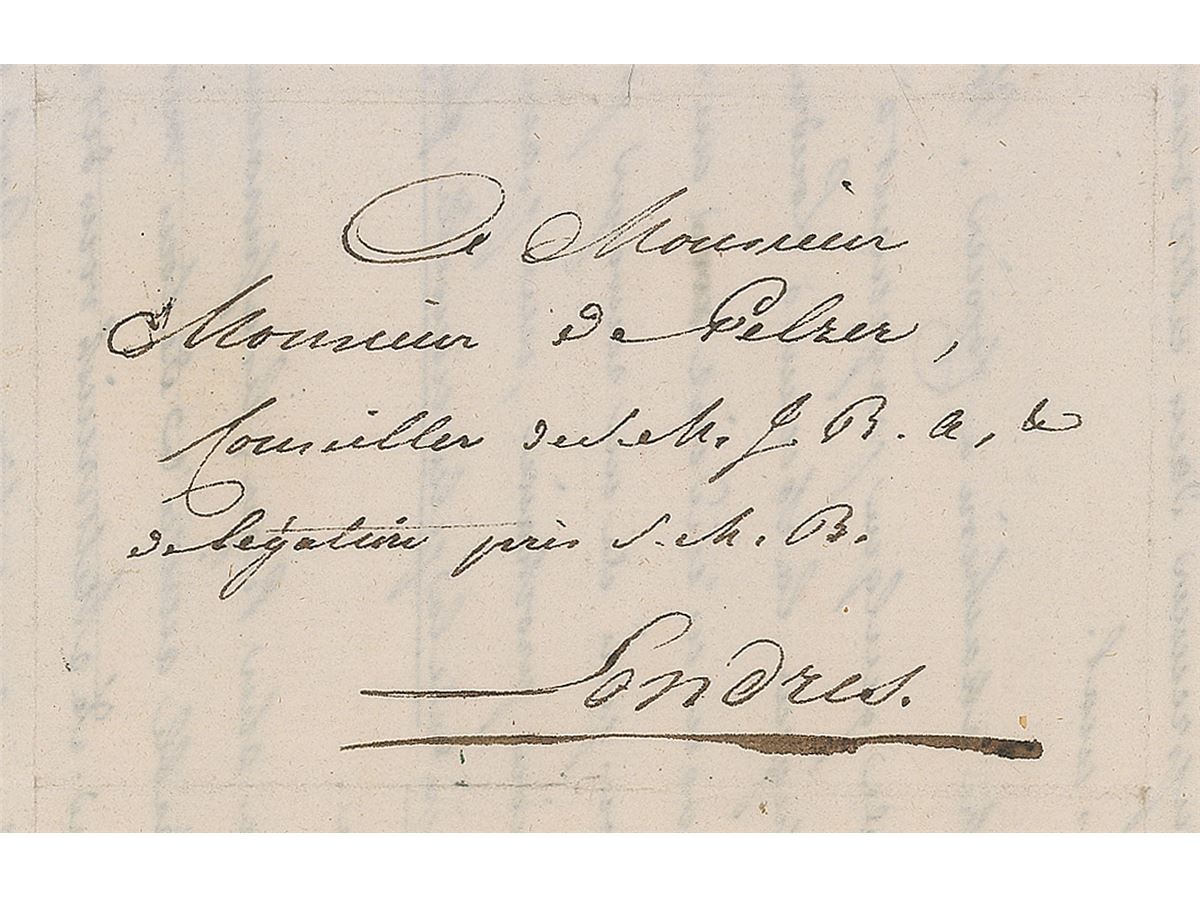 A Monsieur
Monsieur de Pelzer,
Conseiller de S. M. J. R. A, &
de légation près S. M. B.
Londres.